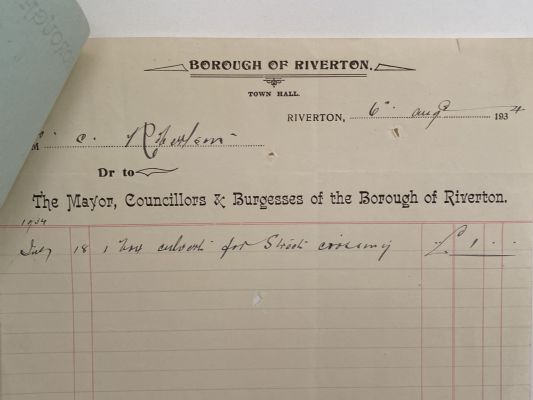 BOROUGH
BOROUGH OF RIVERTON.
TOWN HALL.
RIVERTON, 6th Augt 1934
M C. Robertson
Dr to
The Mayor, Councillors & Burgesses of the Borough of Riverton.
1934
July 18 1 box culvert for Street crossing £ 1 - -